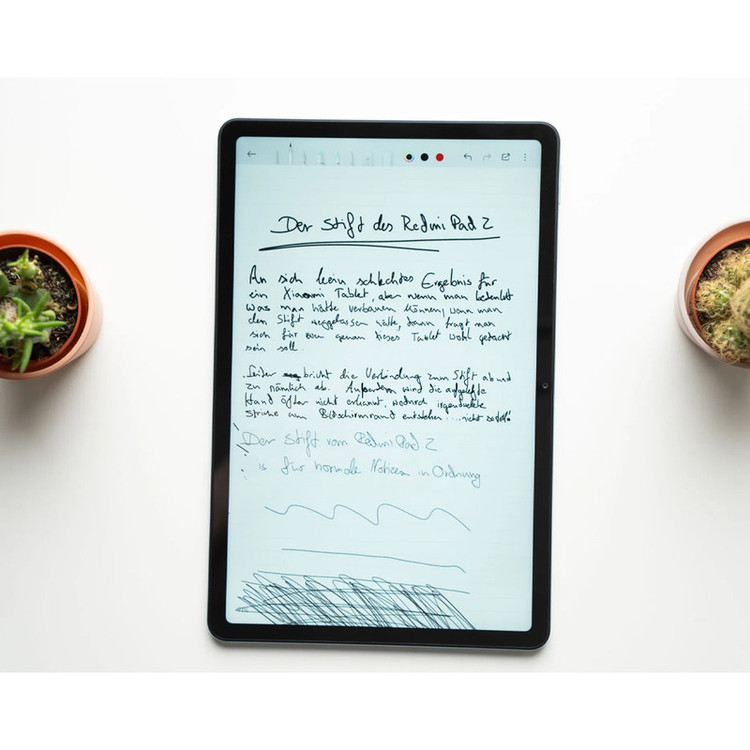 Der Stift des Redmi Pad 2
An sich kein schlechtes Ergebnis für
ein Xiaomi Tablet, aber wenn man bedenkt
was man hätte verbauen können, wenn man
den Stift weggelassen hätte, dann fragt man
sich für wen genau dieses Tablet wohl gedacht
sein soll.
Leider bricht die Verbindung zum Stift ab und
zu nämlich ab. Außerdem wird die aufgelegte
Hand öfter nicht erkannt, wodurch irgendwelche
striche am Bildschirmrand entstehen ... nicht so toll!
Der Stift vom Redmi Pad 2
is für normale Notizen in Ordnung